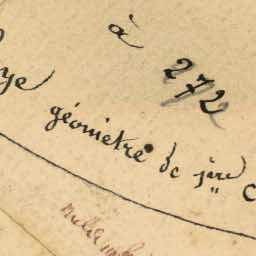 à 272
ye géomètre de 1ère c